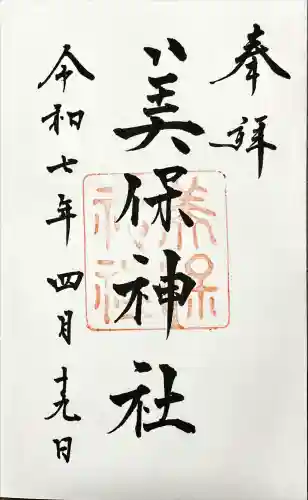 奉拝
美保神社
美保
神社
令和七年四月十九日